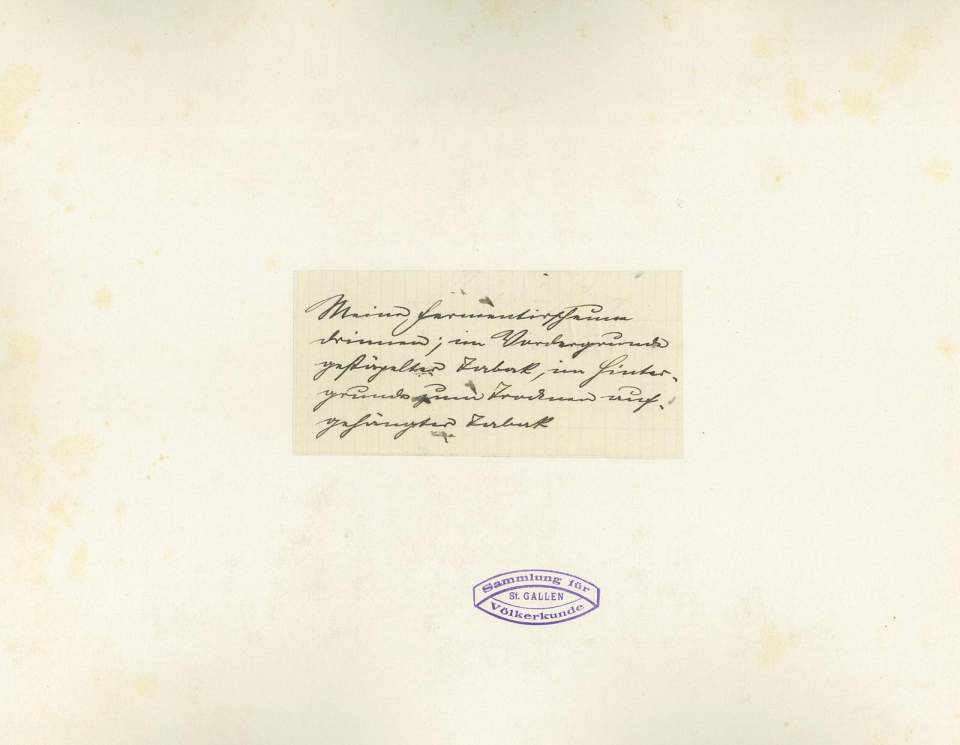 Meine Fermentirscheune
drinnen; im Vordergrunde
gestapelter Tabak, im Hinter-
grunde zum Trocknen auf-
gehängter Tabak
Sammlung für
St. GALLEN
Völkerkunde